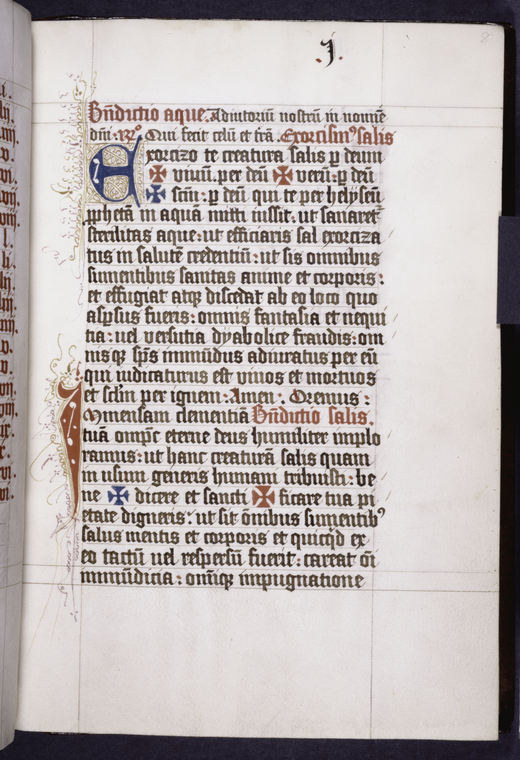 .J.
8
Bn̄dictio aque. Adiutoriū nostrū in nomīe
dn̄i. Qui fecit celū et t̄rā. Exorcism9 salis
Exorcizo te creatura salis ꝑ deum
✠ viuū. per deū ✠ verū: ꝑ deū
✠ sc̄m: ꝑ deū qui te per helyseū
ꝓphetā in aquā mitti iussit. ut sanaret᷑
sterilitas aque: ut efficiaris sal exorciza
tus in salutē credentiū: ut sis omnibus
sumentibus sanitas anime et corporis:
et effugiat atqꝫ discedat ab eo loco quo
asꝑsus fueris: omnis fantasia et nequi
tia: uel versutia dyabolice fraudis: om
nisqꝫ sp̄s inmūdus adiuratus per eū
qui iudicaturus est viuos et mortuos
et sc̄lm per ignem: Amen. Oremus:
Inmensam clementiā Bn̄dictio salis.
tuā omp̄c eterne deus humiliter implo
ramus: ut hanc creaturā salis quam
in usum generis humani tribuisti: be
ne ✠ dicere et sancti ✠ ficare tua pi
etate digneris: ut sit ōnibus sumentib9
salus mentis et corporis et quicqd ex
eo tactū uel respersū fuerit: careat oī
inmūdicia: omniqꝫ impugnatione